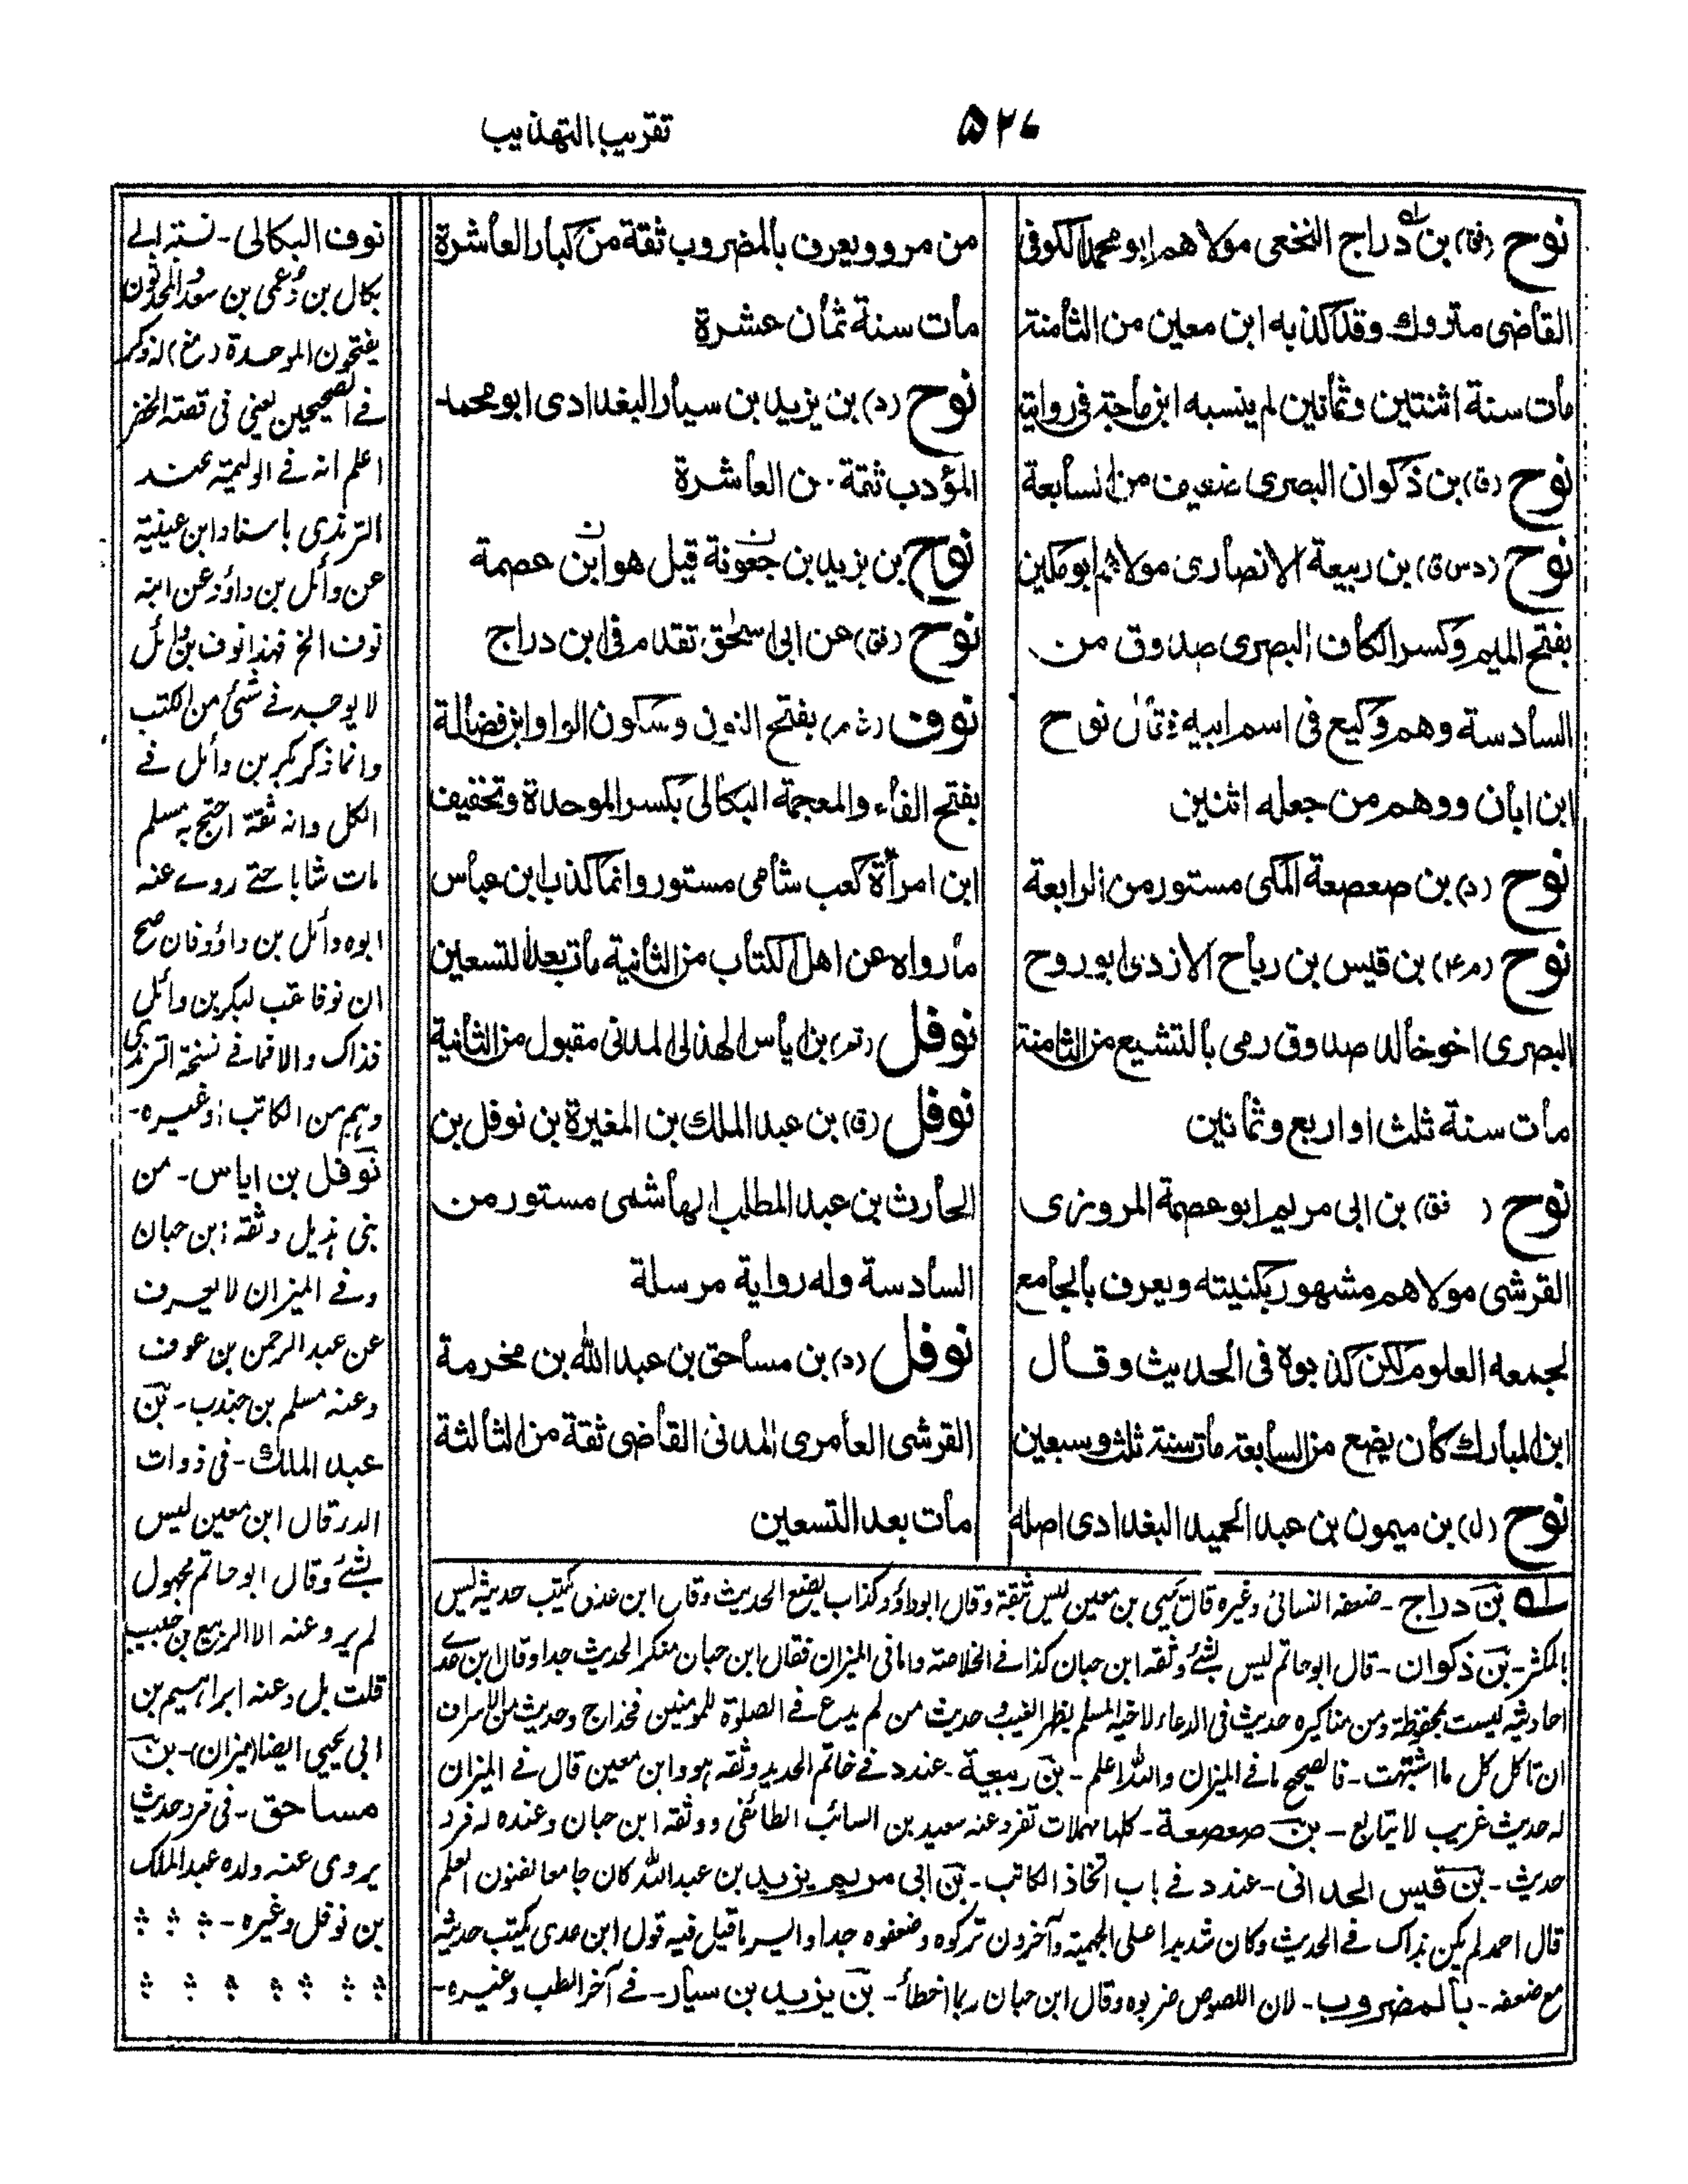 ۵۲۶
تقريب التهذيب
نوح (فق) بن دراج النخعى مولاهم ابو محمد الكوفى
القاضى متروك وقد كذبه ابن معين من الثامنة
مات سنة اثنتين وثمانين لم ينسبه ابن ماجة فى روايته
نوح (ق) بن ذكوان البصرى ضعيف من السابعة
نوح (دس ق) بن ربيعة الانصارى مولاهم ابو مكين
بفتح الميم وكسر الكاف البصرى صدوق من
السادسة وهم وكيع فى اسم ابيه فقال نوح
ابن ابان ووهم من جعله اثنين
نوح (د) بن صعصعة المكى مستور من الرابعة
نوح (م عه) بن قيس بن رباح الازدى ابو روح
البصرى اخو خالد صدوق رمى بالتشيع من الثامنة
مات سنة ثلث او اربع وثمانين
نوح ( فق) بن ابى مريم ابو عصمة المروزى
القرشى مولاهم مشهور بكنيته ويعرف بالجامع
لجمعه العلوم لكن كذبوه فى الحديث وقال
ابن المبارك كان يضع من السابعة مات سنة ثلث وسبعين
نوح (ل) بن ميمون بن عبد الحميد البغدادى اصله
من مرو ويعرف بالمضروب ثقة من كبار العاشرة
مات سنة ثمان عشرة
نوح (د) بن يزيد بن سيار البغدادى ابو محمد
المؤدب ثقة من العاشرة
نوح بن يزيد بن جعونة قيل هو ابن عصمة
نوح (فق) عن ابى اسحق تقدم فى ابن دراج
نوف (خ م) بفتح النون وسكون الواو ابن فضالة
بفتح الفاء والمعجمة البكالى بكسر الموحدة وتخفيف
ابن امرأة كعب شامى مستور وانما كذب ابن عباس
ما رواه عن اهل الكتاب من الثانية مات بعد التسعين
نوفل (تم) بن اياس الهذلى المدنى مقبول من الثانية
نوفل (ق) بن عبد الملك بن المغيرة بن نوفل بن
الحارث بن عبد المطلب الهاشمى مستور من
السادسة وله رواية مرسلة
نوفل (د) بن مساحق بن عبد الله بن مخرمة
القرشى العامرى المدنى القاضى ثقة من الثالثة
مات بعد التسعين
له بن دراج - ضعفه النسائى وغيره قال يحيى بن معين ليس بثقة وقال ابو داؤد كذاب يضع الحديث وقال ابن عدى يكتب حديثه ليس
بالمكثر - بن ذكوان - قال ابو حاتم ليس بشئ وثقه ابن حبان كذا فى الخلاصة واما فى الميزان فقال ابن حبان منكر الحديث جدا وقال ابن عدى
احاديثه ليست بمحفوظة ومن مناكيره حديث فى الدعاء لاخيه المسلم بظهر الغيب وحديث من لم يدع فى الصلوة للمومنين فخداج وحديث من الاسراف
ان تاكل كل ما اشتهت - فالصحيح ما فى الميزان والله اعلم - بن ربيعة - عند د فى خاتم الحديد وثقه هو وابن معين قال فى الميزان
له حديث غريب لا يتابع - بن صعصعة - كلها مهملات تفرد عنه سعيد بن السائب الطائفى ووثقه ابن حبان وعنده له فرد
حديث - بن قيس الحدانى - عند د فى باب اتخاذ الكاتب - بن ابى مريم يزيد بن عبد الله كان جامعا لفنون العلم
قال احمد لم يكن بذاك فى الحديث وكان شديدا على الجهمية وآخرون تركوه وضعفوه جدا وايسر ما قيل فيه قول ابن عدى يكتب حديثه
مع ضعفه - بالمضروب - لان اللصوص ضربوه وقال ابن حبان ربما اخطأ - بن يزيد بن سيار - فى آخر الطب وغيره -
نوف البكالى - نسبته الى
بكال بن دعمى بن سعد المحدثون
يفتحون الموحدة (مغ) له ذكر
فى الصحيحين يعنى فى قصة الخضر
اعلم انه فى الوليمة عند
الترمذى باسناد ابن عيينة
عن وائل بن داؤد عن ابنه
نوف الخ فهذا نوف بن وائل
لا يوجد فى شئ من الكتب
وانما ذكر بكر بن وائل فى
الكل وانه ثقة احتج به مسلم
مات شابا حتى روى عنه
ابوه وائل بن داؤد فان صح
ان نوفا لقب لبكر بن وائل
فذاك والا فما فى نسخة الترمذى
وهم من الكاتب او غيره -
نوفل بن اياس - من
بنى هذيل وثقه ابن حبان
وفى الميزان لا يعرف
عن عبد الرحمن بن عوف
وعنه مسلم بن جندب - بن
عبد الملك - فى ذوات
الدر قال ابن معين ليس
بشئ وقال ابو حاتم مجهول
لم يرو عنه الا الربيع بن حبيب
قلت بل وعنه ابراهيم بن
ابى يحيى ايضا (ميزان) - بن
مساحق - فى فرد حديث
يروى عنه ولده عبد الملك
بن نوفل وغيره -